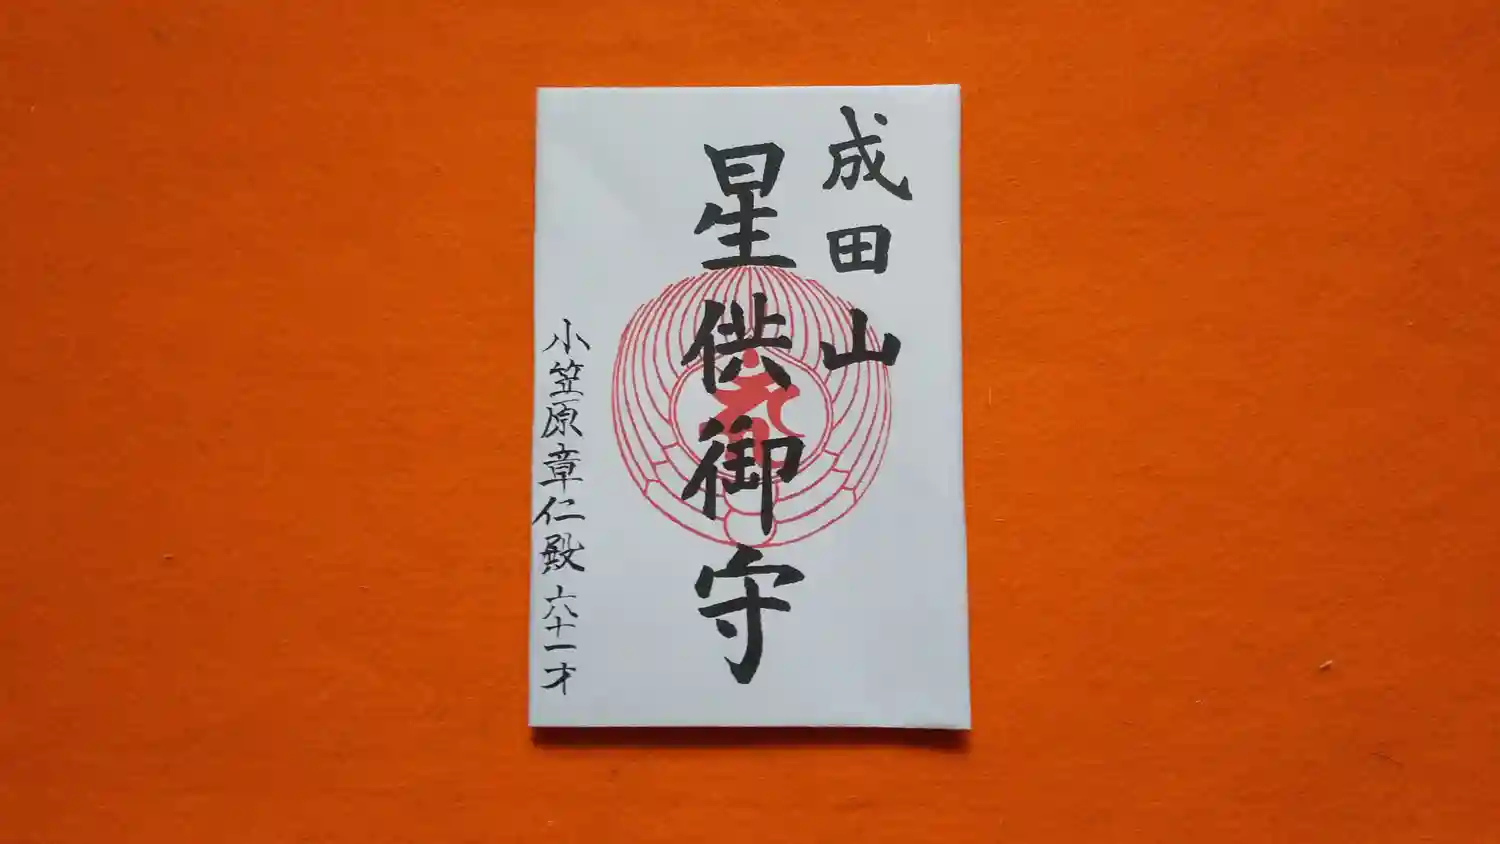 成田山
星供御守
小笠原章仁殿 六十一才